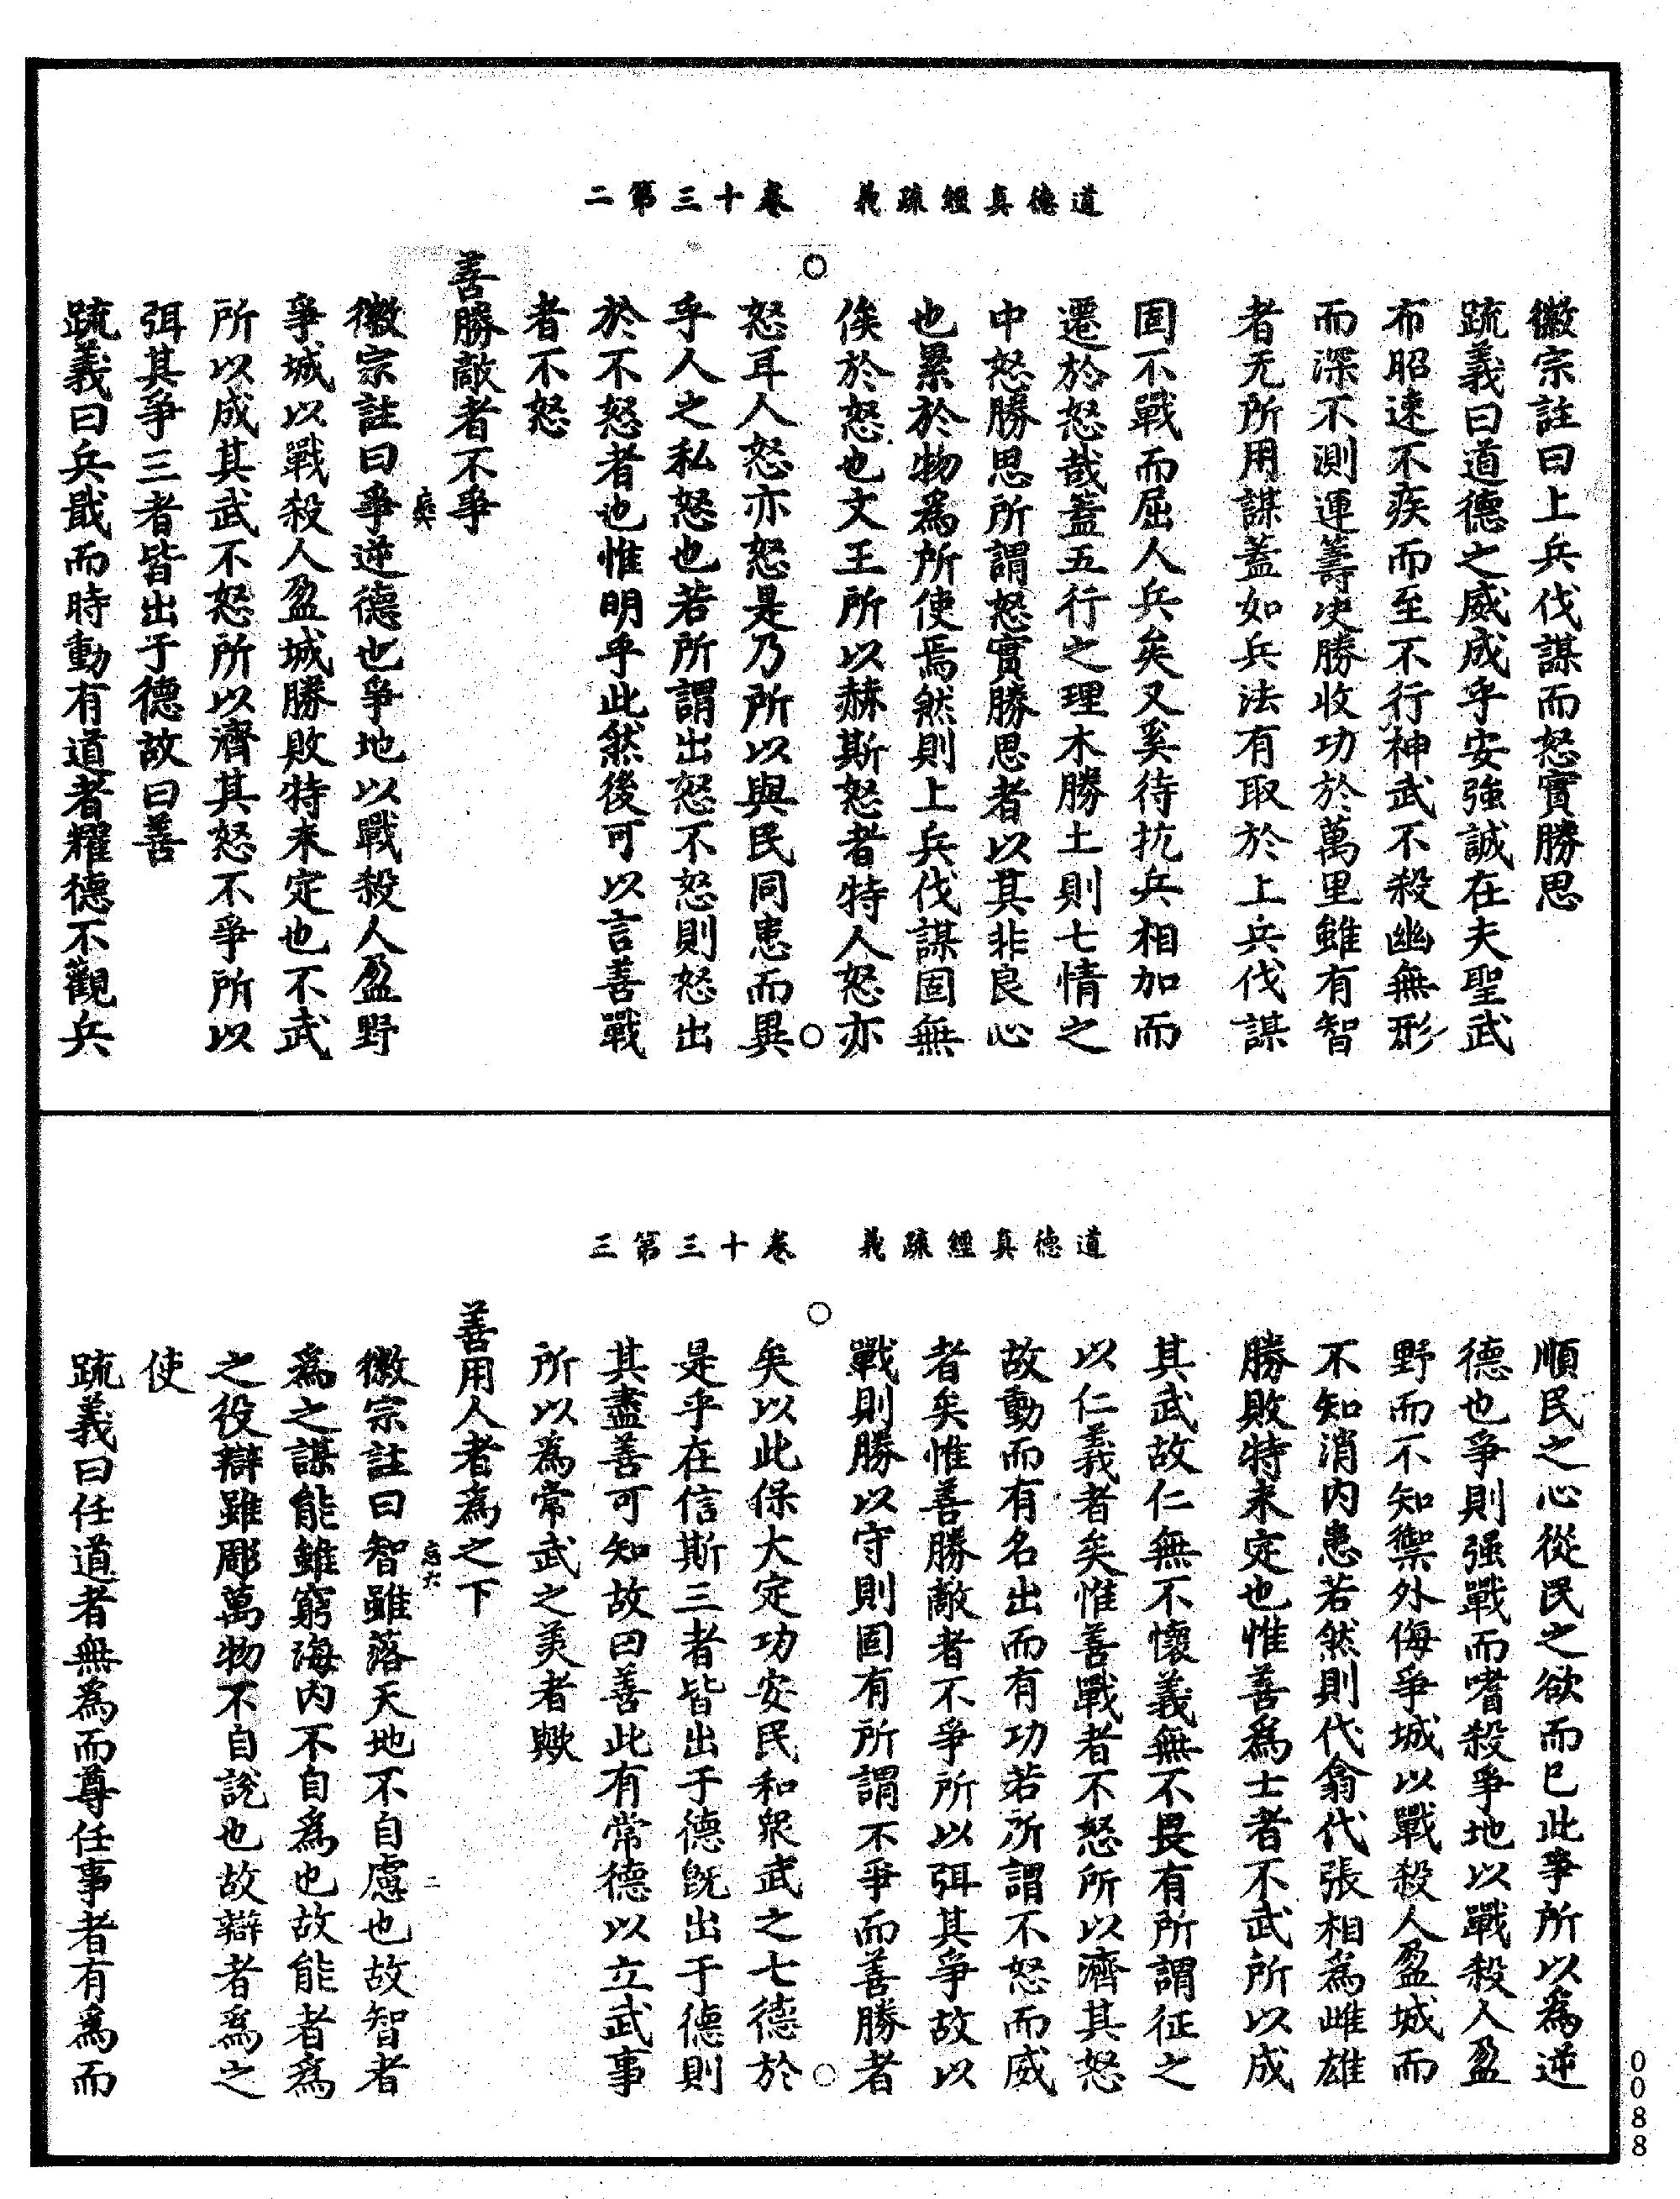 道德真經疏義　卷十三第二
徽宗註曰上兵伐謀而怒實勝思
疏義曰道德之威成乎安強誠在夫聖武
布昭速不疾而至不行神武不殺幽無形
而深不測運籌决勝收功於萬里雖有智
者无所用謀蓋如兵法有取於上兵伐謀
固不戰而屈人兵矣又奚待抗兵相加而
遷於怒哉蓋五行之理木勝土則七情之
中怒勝思所謂怒實勝思者以其非良心
也累於物爲所使焉然則上兵伐謀固無
俟於怒也文王所以赫斯怒者特人怒亦
怒耳人怒亦怒是乃所以與民同患而異
乎人之私怒也若所謂出怒不怒則怒出
於不怒者也惟明乎此然後可以言善戰
者不怒
善勝敵者不爭
徽宗註曰爭逆德也爭地以戰殺人盈野
爭城以戰殺人盈城勝敗特未定也不武
所以成其武不怒所以濟其怒不爭所以
弭其爭三者皆出于德故曰善
疏義曰兵戢而時動有道者耀德不觀兵
道德真經疏義　卷十三第三
順民之心從民之欲而已此爭所以為逆
德也爭則强戰而嗜殺爭地以戰殺人盈
野而不知禦外侮爭城以戰殺人盈城而
不知消内患若然則代翕代張相為雌雄
勝敗特未定也惟善爲士者不武所以成
其武故仁無不懷義無不畏有所謂征之
以仁義者矣惟善戰者不怒所以濟其怒
故動而有名出而有功若所謂不怒而威
者矣惟善勝敵者不爭所以弭其爭故以
戰則勝以守則固有所謂不爭而善勝者
矣以此保大定功安民和衆武之七德於
是乎在信斯三者皆出于德旣出于德則
其盡善可知故曰善此有常德以立武事
所以為常武之美者歟
善用人者爲之下
徽宗註曰智雖落天地不自慮也故智者
爲之謀能雖窮海内不自爲也故能者爲
之役辯雖彫萬物不自說也故辯者爲之
使
疏義曰任道者無為而尊任事者有爲而
0088